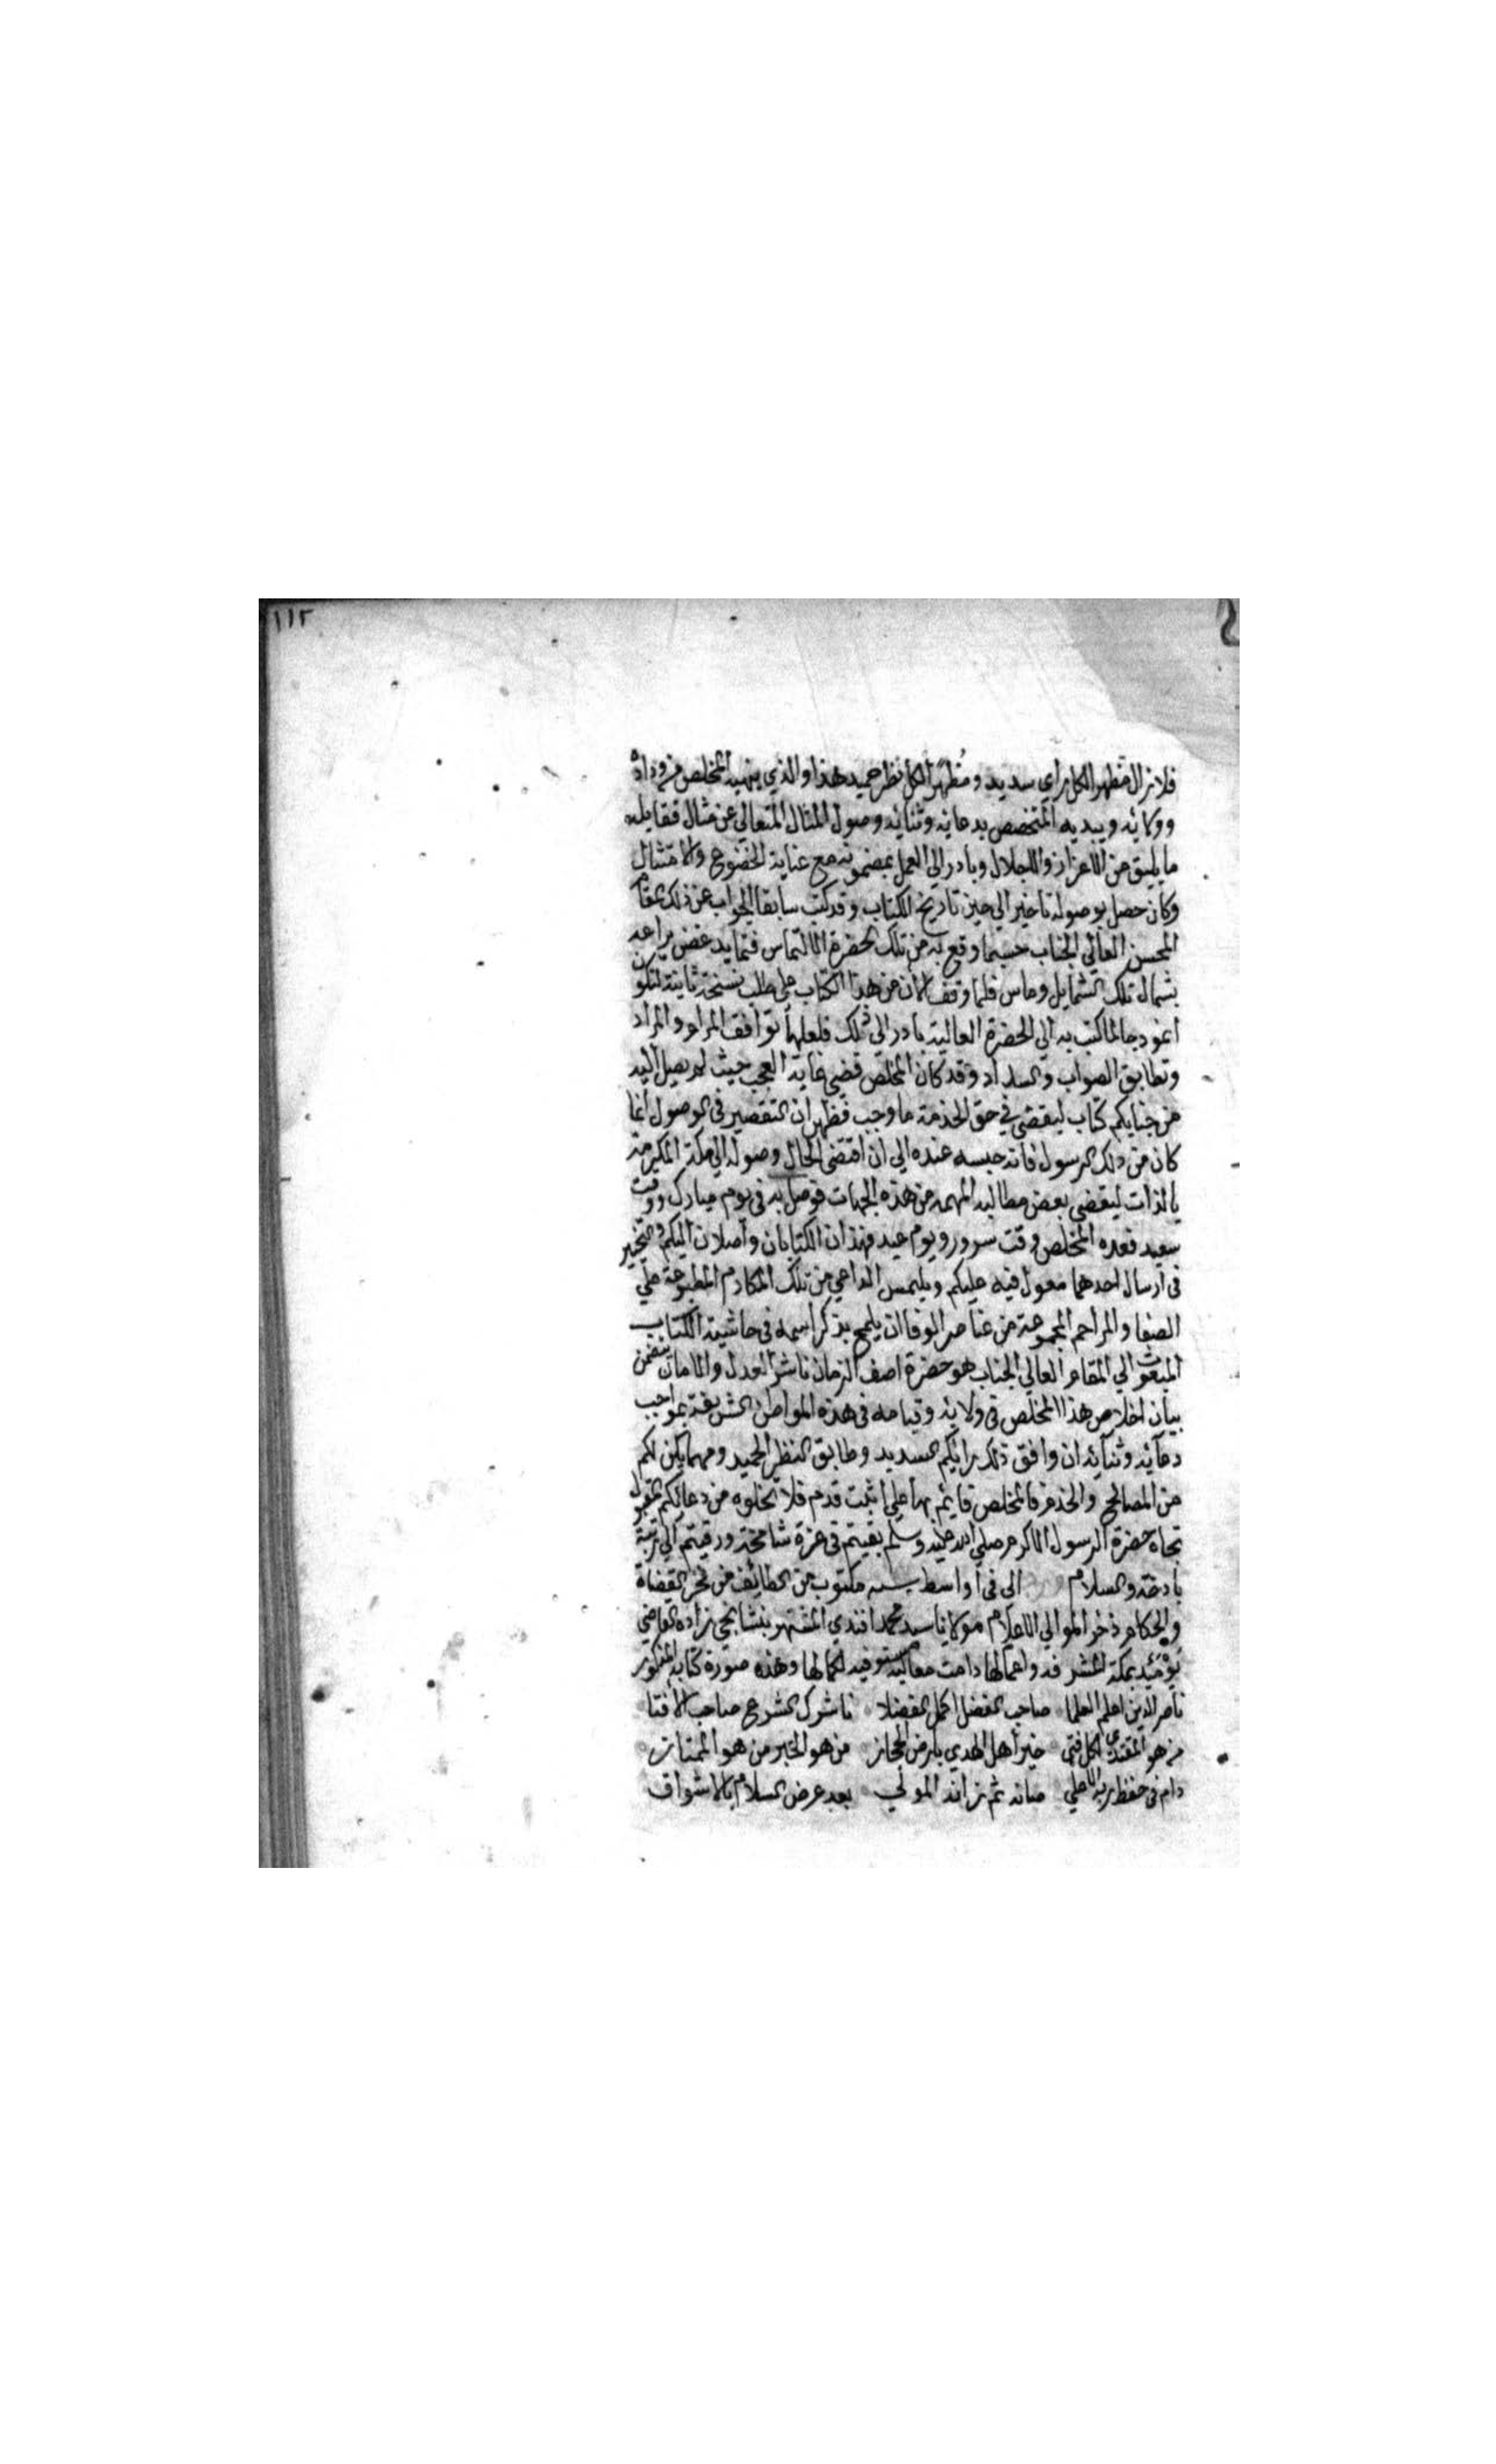 ١١٢
فلا زال مظهرا لكل راي سديد ومُظهرا لكل نظر حميد هذا والذي ينهيه المخلص في وداده
وولائه ويبديه المتخصص بدعائه وثنائه وصول المثال المتعالي عن مثال فقابله
ما يليق من الاعزاز والاجلال وبادر الي العمل بمضمونه مع غناية الخضوع والامتثال
وكان حصل بوصوله تاخير الي حين تاريخ الكتاب وقد كتب سابقا الجواب عن ذلك المقام
المحسن العالي الجناب حسبما وقع به من تلك الحضرة الالتماس فتمايد غصن يراعه
بشمال تلك الشمايل وماس فلما وقف الان من هذا الكتاب على طلب نسخة ثانية لتكون
انموذجا لما كتب به الي الحضرة العالية بادر الي ذلك فلعلها توافق المرام والمراد
وتطابق الصواب والسداد وقد كان المخلص قضي غاية العجب حيث لم يصل اليه
من جنابكم كتاب ليقضي في حق الخدمة ما وجب فظهر ان التقصير في الوصول انما
كان من ذلك الرسول فانه حبسه عنده الي ان اقتضي الحال وصوله الي مكة المكرمة
بالذات ليقضي بعض مطالبه المهمه من هذه الجهات فوصل به في يوم مبارك ووقت
سعيد فعده المخلص وقت سرور ويوم عيد فهذان الكتابان واصلان اليكم والتخيير
في ارسال احدهما معول فيه عليكم ويلتمس الداعي من تلك المكارم المطبوعة علي
الصفا والمراحم المجموعة من عناصر الوفا ان يلمح بذكر اسمه في حاشية الكتاب
المبعوث الي المقام العالي الجناب هو حضرة اصف الزمان ناشر العدل والامان يتضمن
بيان اخلاص هذا المخلص في ولائه وقيامه في هذه المواطن الشريفة بمواجب
دعائه وثنائه ان وافق ذلك رايكم السديد وطابق النظر الحميد ومهما يكن لكم
من المصالح والخدم فالمخلص قايم بها علي اثبت قدم فلا تخلوه من دعائكم المقبول
تجاه حضرة الرسول الاكرم صلي الله عليه وسلم بقيتم في عزة شامخة ورقيتم الي رتبة
باذخة والسلام الي في اواسط سنه مكتوب من الطائف من فخر القضاة
والحكام ذخر الموالي الاعلام مولانا سيد محمد افندي المشتهر بنشانجي زاده القاضي
يومئذ بمكة المشرفه واعمالها دامت معاليه مستوفيه لكمالها وهذه صورة كتابه المذكور
ناصر الدين اعلم العلما صاحب الفضل اكمل الفضلا ناشر الشرع صاحب الافتا
من هو المقتدي لكل فتي خير أهل الهدي بارض الحجاز من هو الخبر من هو الممتاز
دام في حفظ ربه الاعلي صانه ثم زانه المولي بعد عرض السلام بالاشواق